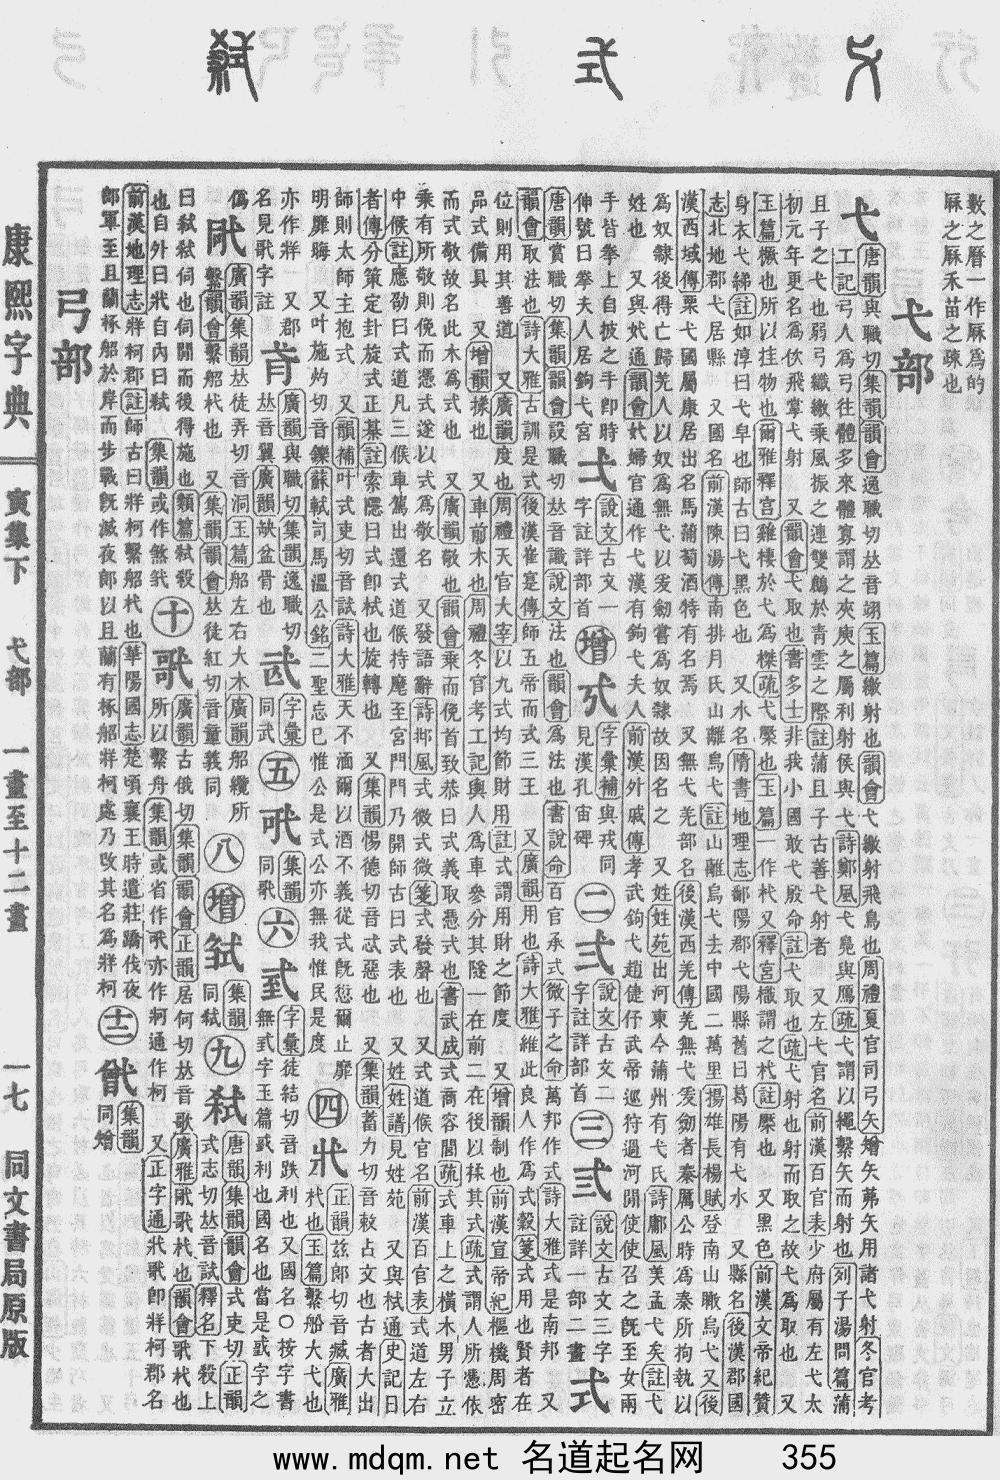 弋 式 弒
數之曆一作厤為的
厤之厤禾苗之疎也
弋部
弋 唐韻與職切集韻韻會逸職切𠀤音翊玉篇繳射也韻會弋繳射飛鳥也周禮夏官司弓矢矰矢茀矢用諸弋射冬官考
工記弓人為弓往體多來體寡謂之夾庾之屬利射侯與弋詩鄭風弋鳧與鴈疏弋謂以繩繫矢而射也列子湯問篇蒲
且子之弋也弱弓纖繳乘風振之連雙鶬於青雲之際註蒲且子古善弋射者 又左弋官名前漢百官表少府屬有左弋太
初元年更名為佽飛掌弋射 又韻會弋取也書多士非我小國敢弋殷命註弋取也疏弋射也射而取之故弋為取也 又
玉篇橛也所以挂物也爾雅釋宮雞棲於弋為榤疏弋橜也玉篇一作杙又釋宮樴謂之杙註橜也 又黑色前漢文帝紀贊
身衣弋綈註如淳曰弋皁也師古曰弋黑色也 又水名隋書地理志鄱陽郡弋陽縣舊曰葛陽有弋水 又縣名後漢郡國
志北地郡弋居縣 又國名前漢陳湯傳南排月氏山離烏弋註山離烏弋去中國二萬里揚雄長楊賦登南山瞰烏弋又後
漢西域傳栗弋國屬康居出名馬蒲萄酒特有名焉 又無弋羌部名後漢西羌傳羌無弋爰劒者秦厲公時為秦所拘執以
為奴隸後得亡歸羌人以奴為無弋以爰劒嘗為奴隸故因名之 又姓姓苑出河東今蒲州有弋氏詩鄘風美孟弋矣註弋
姓也 又與妷通韻會妷婦官通作弋漢有鉤弋夫人前漢外戚傳孝武鉤弋趙倢伃武帝巡狩過河間使使召之旣至女兩
手皆拳上自披之手卽時
伸號曰拳夫人居鉤弋宮 弌 說文古文一
字註詳部首 增 𢎊 字彙補與戎同
見漢孔宙碑 二 弍 說文古文二
字註詳部首 三 弎 說文古文三字
註詳一部二畫 式
唐韻賞職切集韻韻會設職切𠀤音識說文法也韻會為法也書說命百官承式微子之命萬邦作式詩大雅式是南邦 又
韻會取法也詩大雅古訓是式後漢崔寔傳師五帝而式三王 又廣韻用也詩大雅維此良人作為式穀箋式用也賢者在
位則用其善道 又廣韻度也周禮天官大宰以九式均節財用註式謂用財之節度 又增韻制也前漢宣帝紀樞機周密
品式備具 又增韻㨾也 又車前木也周禮冬官考工記輿人為車參分其隧一在前二在後以揉其式疏式謂人所憑依
而式敬故名此木為式也 又廣韻敬也韻會乘而俛首致恭曰式義取憑式也書武成式商容閭疏式車上之橫木男子立
乘有所敬則俛而憑式遂以式為敬名 又發語辭詩邶風式微式微箋式發聲也 又式道候官名前漢百官表式道左右
中候註應劭曰式道凡三候車駕出還式道候持麾至宮門門乃開師古曰式表也 又姓姓譜見姓苑 又與栻通史記日
者傳分策定卦旋式正棊註索隱曰式卽栻也旋轉也 又集韻惕德切音忒惡也 又集韻蓄力切音敕占文也古者大出
師則太師主抱式 又韻補叶式吏切音試詩大雅天不湎爾以酒不義從式旣愆爾止靡
明靡晦 又叶施灼切音鑠蘇軾司馬溫公銘二聖忘己惟公是式公亦無我惟民是度 四 𢎎 正韻茲郎切音臧廣雅
杙也玉篇繫船大弋也
亦作牂 一 又郡
名見㢦字註 𢎆 廣韻與職切集韻逸職切
𠀤音翼廣韻缺盆骨也 武 字彙
同武 五 𢎈 集韻
同㢦 六 𢎐 字彙徒結切音跌利也又國名〇按字書
無𢎐字玉篇𢧜利也國名也當是𢧜字之
譌 𢎋 廣韻集韻𠀤徒弄切音洞玉篇船左右大木廣韻船纜所
繫韻會繫船杙也 又集韻韻會𠀤徒紅切音童義同 八 增 𢎍 集韻
同弒 九 弒 唐韻集韻韻會式吏切正韻
式志切𠀤音試釋名下殺上
曰弒弒伺也伺閒而後得施也類篇弒殺
也自外曰戕自內曰弒 集韻或作煞㢤 十 㢦 廣韻古俄切集韻韻會正韻居何切𠀤音歌廣雅㢦㢦杙也韻會㢦杙也
所以繫舟集韻或省作𢎈亦作牁通作柯 又正字通牂㢦卽牂柯郡名
前漢地理志牂柯郡註師古曰牂柯繫船杙也華陽國志楚頃襄王時遣莊蹻伐夜
郎軍至且蘭椓船於岸而步戰旣滅夜郎以且蘭有椓船牂柯處乃攺其名為牂柯 十二 𢎖 集韻
同矰
弓部
康熙字典 寅集下 弋部 一畫至十二畫 一七 同文書局原版
www.mdqm.net 名道起名网 355